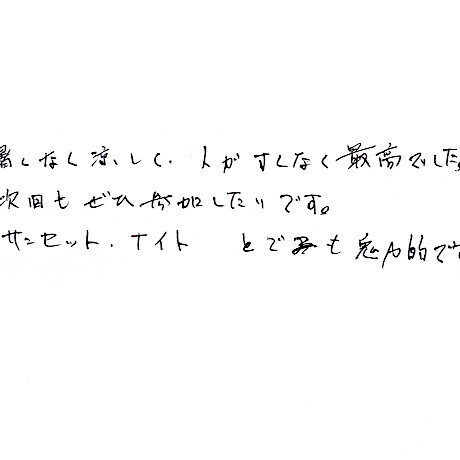 暑しなく涼しく、人がすくなく最高でした。
次回もぜひ参加したいです。
サンセット・ナイト とても魅力的で